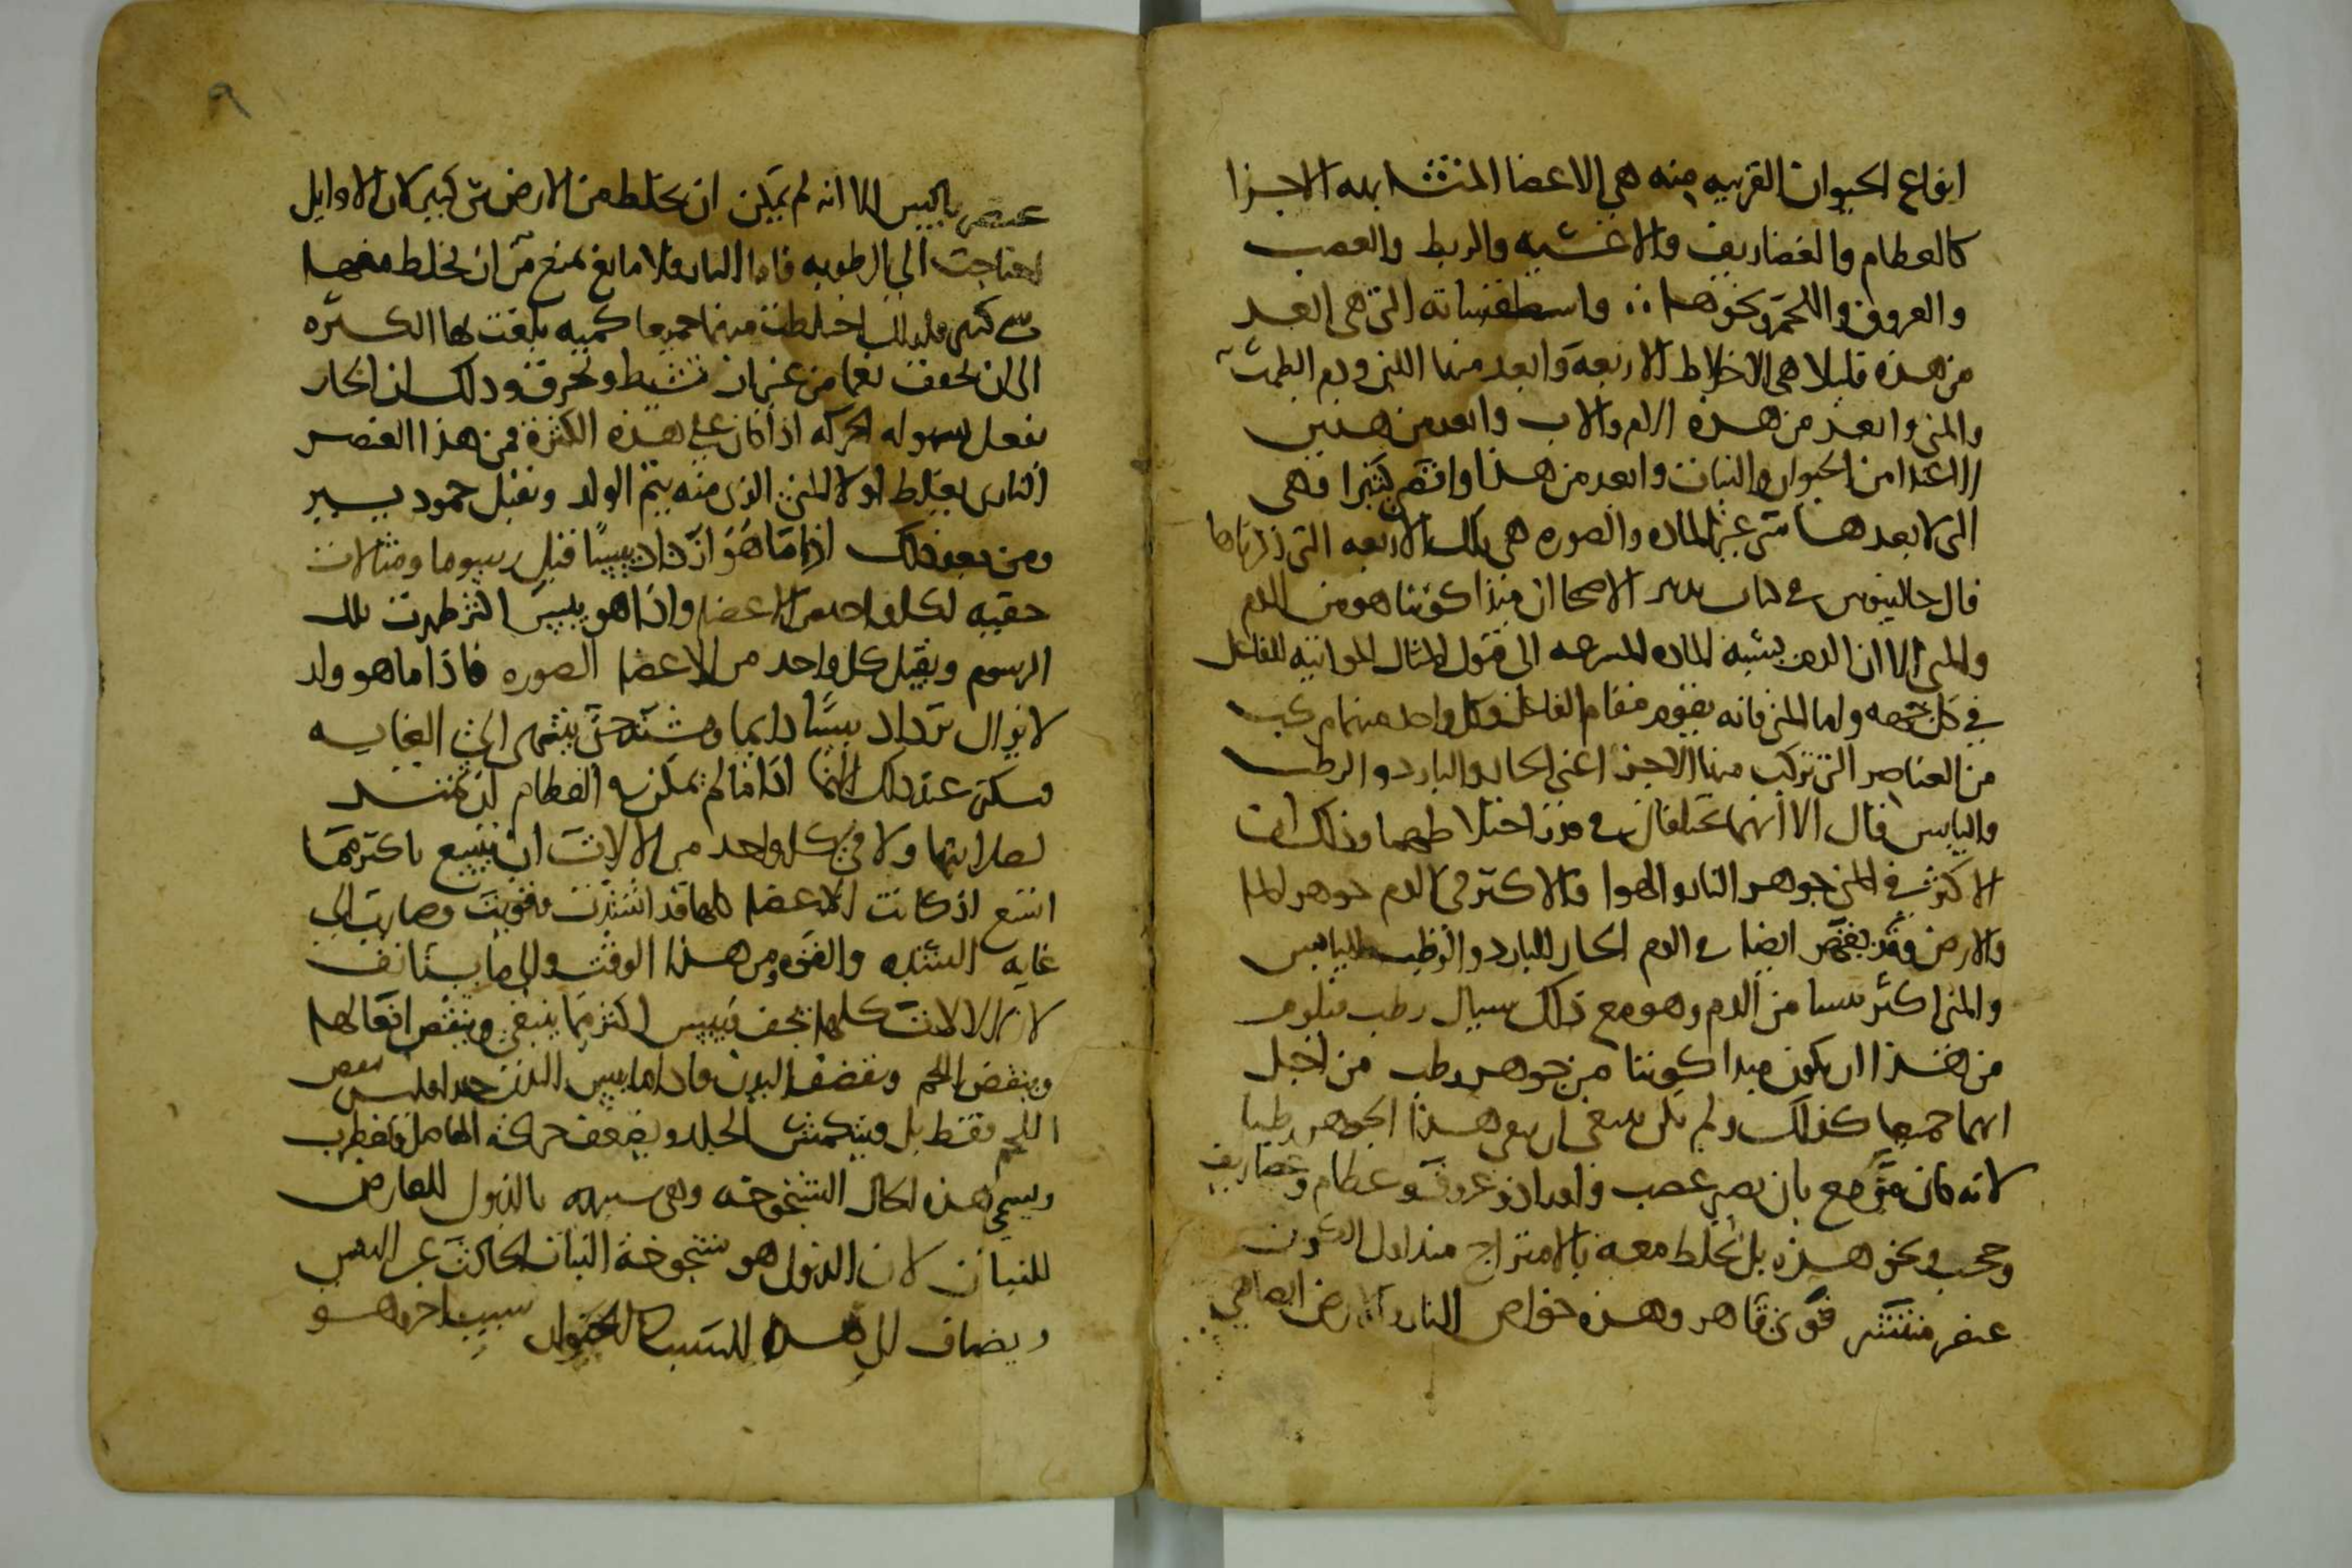 انواع الحيوان القريبه منه هي الاعضا المتشابهه الاجزا
كالعظام والغضاريف والاغشيه والربط والعصب
والعروق واللحم ونحوها ∴ واسطقساته التي هي ابعد
من هذه قليلا هي الاخلاط الاربعه وابعد منها اللبن ودم الطمث
والمني وابعد من هذه الام والاب وابعد من هذين
الاغذا من الحيوان والنبات وابعد من هذا وانقص كثيرا فهي
التي لا بعدها شي غير الماده والصوره هي تلك الاربعه التي ذكرناها
قال جالينوس في كتاب تدبير الاصحا ان مبدا كوننا هو من الدم
والمني الا ان الدم يشبه الماده الى قبول المثال المواتيه للفاعل
في كل جهه واما المني فانه يقوم مقام الفاعل وكل واحد منهما مركب
من العناصر التي تركب منها الاجزا اعني الحار والبارد والرطب
واليابس قال الا انهما يختلفان في قدر اختلاطهما وذلك ان
الاكثر في المني جوهر النار والهوا والاكثر في الدم جوهر الما
والارض وقد ايضا في الدم الحار للبارد والرطب لليابس
والمني اكثر يبسا من الدم وهو مع ذلك سيال رطب فيلزم
من هذا ان يكون مبدا كوننا من جوهر رطب من اجل
انهما جميعا كذلك ولم يكن ينبغي ان يبقى هذا الجوهر رطبا
لانه كان مزمع بان يصير عصب واوراد وعروق وعظام وغضاريف
وحجب ونحو هذه بل يخلط معه بالامتزاج منذ اول الكون
عنصر قوي قاهر وهذه خواص النار والارض ايضا هي
٩
عنصر يابس الا انه لم يمكن ان يخلط من الارض شي كبير لان الاوايل
احتاجت الى الرطوبه فاما النار فلا مانع يمنع من ان يخلط معها
شي كثير ولذلك اختلطت منهما جميعا كميه بلغت بها الكثره
الى ان يجفف بهما من غير ان تشيط وتحرق وذلك ان الحار
يفعل بسهوله الحركه اذا كان على هذه الكثره فمن هذا العنصر
الناري يغلظ اولا المني الذي منه يتم الولد ويقبل جمود يسير
ومن بعد ذلك اذا ما هو ازداد يبسا قبل رسوما ومثالات
خفيه لكل واحد من الاعضا واذا هو يبس اكثر ظهرت تلك
الرسوم ويقبل كل واحد من الاعضا الصوره فاذا ما هو ولد
لا يزال يزداد يبسا دايما ويشتد حتى ينتهي الى الغايه
ويسكن عند ذلك النما اذا ما لم يمكن في العظام ان تمتد
لصلابتها ولا في كل واحد من الالات ان يتسع باكثر مما
اتسع اذ كانت الاعضا كلها قد اشتدت وقويت وصارت الى
غايه الشده والقوه ومن هذا الوقت والى ما يستانف
لا تزال الالات كلها تجف وتيبس اكثر مما ينبغي وينقص افعالها
وينقص اللحم ويقضف البدن فاذا ما يبس البدن جدا فليس ينقص
اللحم فقط بل ويتكمش الجلد ويضعف حركه المفاصل وتضطرب
ويسمى هذه الحال الشيخوخه وهي شبيهه بالذبول العارض
للنبات لان الذبول هو شيخوخة النبات الحادثة عن اليبس
ويضاف الى هذا السبب سبب اخر وهو